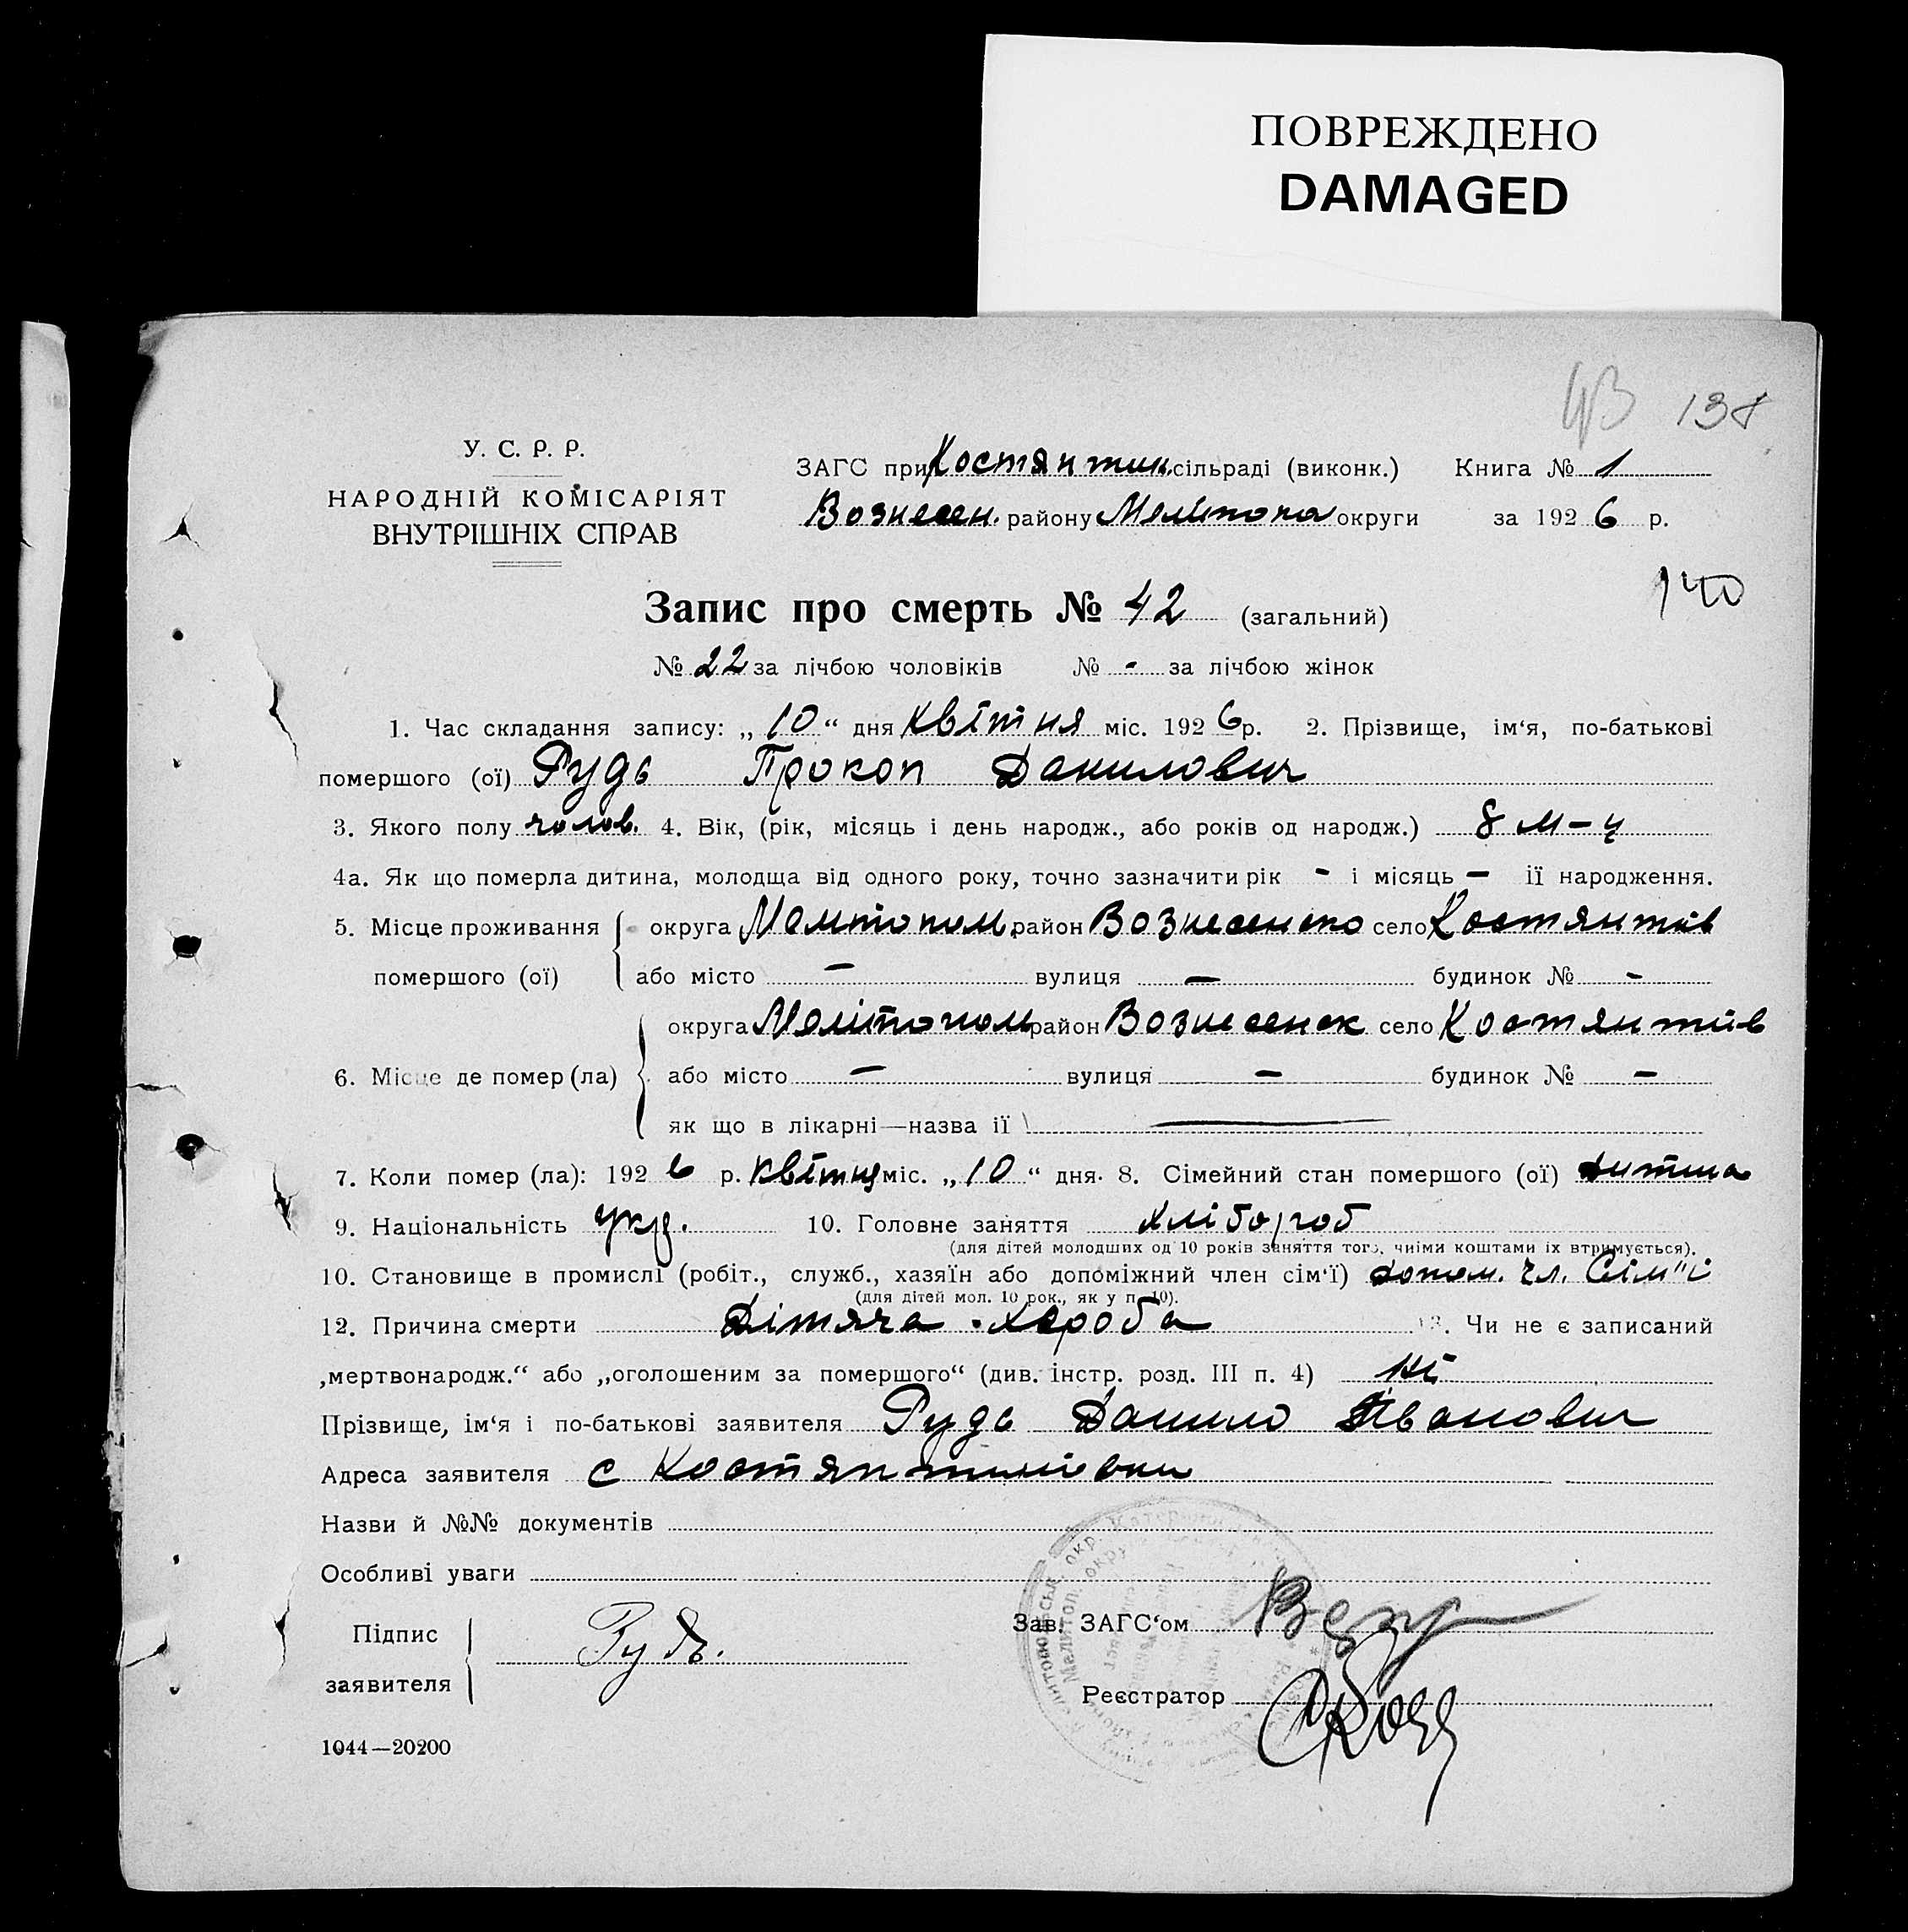 ПОВРЕЖДЕНО
DAMAGED
138
У. С. Р. Р.
НАРОДНІЙ КОМІСАРІЯТ
ВНУТРІШНІХ СПРАВ
ЗАГС при Костянтин. сільраді (виконк.) Книга № 1
Вознесен. району Мелітопо округи за 1926 р.
140
Запис про смерть № 42 (загальний)
№ 22 за лічбою чоловіків № - за лічбою жінок
1. Час складання запису: „10“ дня квітня міс. 1926 р. 2. Прізвище, ім‘я, по-батькові
помершого (ої) Рудь Прокоп Данилович
3. Якого полу чолов. 4. Вік, (рік, місяць і день народж., або років од народж.) 8 м-ц
4а. Як що померла дитина, молодща від одного року, точно зазначити рік - і місяць — її народження.
5. Місце проживання округа Мелітопол. район Вознесенско село Костянтів
помершого (ої) або місто — вулиця — будинок № -
округа Мелітопол район Вознесенск село Костянтів
6. Місце де помер (ла) або місто — вулиця — будинок № —
як що в лікарні—назва її —
7. Коли помер (ла): 1926 р. квітня міс. „10“ дня. 8. Сімейний стан помершого (ої) дитина
9. Національність укр. 10. Головне заняття хлібороб
(для дітей молодших од 10 років заняття того, чиїми коштами їх втримується).
10. Становище в промислі (робіт., служб., хазяїн або допоміжний член сім‘ї) допом. чл. Сім"ї
(для дітей мол. 10 рок., як у п. 10).
12. Причина смерти Дітяча хороба 13. Чи не є записаний
„мертвонародж.“ або „оголошеним за помершого“ (див. інстр. розд. III п. 4) ні
Прізвище, ім‘я і по-батькові заявителя Рудь Данило Іванович
Адреса заявителя с Костянтинівки
Назви й №№ документів
Особливі уваги
Підпис
заявителя Рудь.
Зав. ЗАГС‘ом
Реєстратор
1044—20200